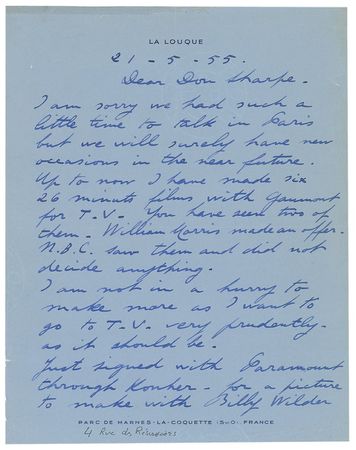 LA LOUQUE
21-5-55.
Dear Don Sharpe.
I am sorry we had such a
little time to talk in Paris
but we will surely have new
occasions in the near future.
Up to now I have made six
26 minute films with Gaumont
for T-V- You have seen two of
them. William Morris made an offer.
N.B.C. saw them and did not
decide anything.
I am not in a hurry to
make more as I want to
go to T-V- very prudently.
as it should be.
Just signed with Paramount
through - for a picture
to make with Billy Wilder
PARC DE MARNES-LA-COQUETTE (S-&-O), FRANCE
4 Rue des